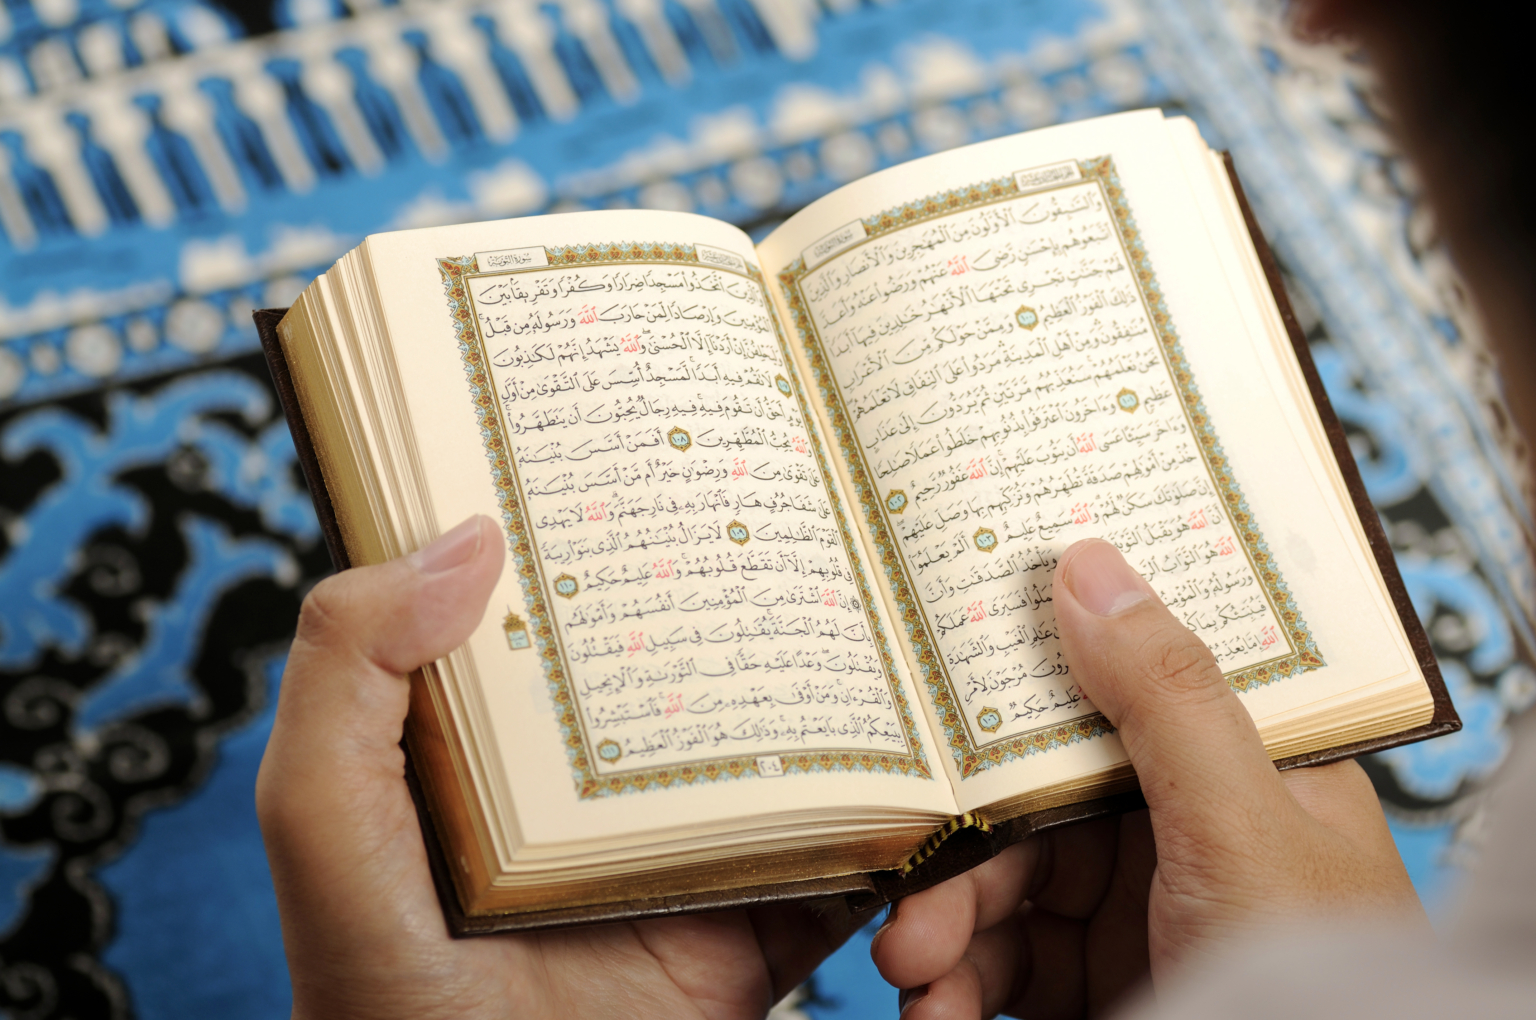 الجزء الحادي عشر سورة التوبة
وَٱلسَّٰبِقُونَ ٱلْأَوَّلُونَ مِنَ ٱلْمُهَٰجِرِينَ وَٱلْأَنصَارِ وَٱلَّذِينَ
ٱتَّبَعُوهُم بِإِحْسَٰنٍ رَّضِىَ ٱللَّهُ عَنْهُمْ وَرَضُوا۟ عَنْهُ وَأَعَدَّ
لَهُمْ جَنَّٰتٍ تَجْرِى تَحْتَهَا ٱلْأَنْهَٰرُ خَٰلِدِينَ فِيهَآ أَبَدًا
ذَٰلِكَ ٱلْفَوْزُ ٱلْعَظِيمُ ١٠٠ وَمِمَّنْ حَوْلَكُم مِّنَ ٱلْأَعْرَابِ
مُنَٰفِقُونَ وَمِنْ أَهْلِ ٱلْمَدِينَةِ مَرَدُوا۟ عَلَى ٱلنِّفَاقِ لَا تَعْلَمُهُمْ
نَحْنُ نَعْلَمُهُمْ سَنُعَذِّبُهُم مَّرَّتَيْنِ ثُمَّ يُرَدُّونَ إِلَىٰ عَذَابٍ
عَظِيمٍ ١٠١ وَءَاخَرُونَ ٱعْتَرَفُوا۟ بِذُنُوبِهِمْ خَلَطُوا۟ عَمَلًا صَٰلِحًا
وَءَاخَرَ سَيِّئًا عَسَى ٱللَّهُ أَن يَتُوبَ عَلَيْهِمْ إِنَّ ٱللَّهَ غَفُورٌ رَّحِيمٌ ١٠٢
خُذْ مِنْ أَمْوَٰلِهِمْ صَدَقَةً تُطَهِّرُهُمْ وَتُزَكِّيهِم بِهَا وَصَلِّ عَلَيْهِمْ
إِنَّ صَلَوٰتَكَ سَكَنٌ لَّهُمْ وَٱللَّهُ سَمِيعٌ عَلِيمٌ ١٠٣ أَلَمْ يَعْلَمُوٓا۟
أَنَّ ٱللَّهَ هُوَ يَقْبَلُ ٱلتَّوْبَةَ وَيَأْخُذُ ٱلصَّدَقَٰتِ وَأَنَّ
ٱللَّهَ هُوَ ٱلتَّوَّابُ فَسَيَرَى ٱللَّهُ عَمَلَكُمْ
وَرَسُولُهُۥ وَٱلْمُؤْمِنُونَ عَٰلِمِ ٱلْغَيْبِ وَٱلشَّهَٰدَةِ
فَيُنَبِّئُكُم بِمَا مُرْجَوْنَ لِأَمْرِ
ٱللَّهِ إِمَّا يُعَذِّبُهُمْ عَلِيمٌ حَكِيمٌ ١٠٦
الجزء الحادي عشر سورة التوبة
وَٱلَّذِينَ ٱتَّخَذُوا۟ مَسْجِدًا ضِرَارًا وَكُفْرًا وَتَفْرِيقًۢا بَيْنَ
ٱلْمُؤْمِنِينَ وَإِرْصَادًا لِّمَنْ حَارَبَ ٱللَّهَ وَرَسُولَهُۥ مِن قَبْلُ
وَلَيَحْلِفُنَّ إِنْ أَرَدْنَآ إِلَّا ٱلْحُسْنَىٰ وَٱللَّهُ يَشْهَدُ إِنَّهُمْ لَكَٰذِبُونَ
١٠٧ لَا تَقُمْ فِيهِ أَبَدًا لَّمَسْجِدٌ أُسِّسَ عَلَى ٱلتَّقْوَىٰ مِنْ أَوَّلِ
يَوْمٍ أَحَقُّ أَن تَقُومَ فِيهِ فِيهِ رِجَالٌ يُحِبُّونَ أَن يَتَطَهَّرُوا۟
وَٱللَّهُ يُحِبُّ ٱلْمُطَّهِّرِينَ ١٠٨ أَفَمَنْ أَسَّسَ بُنْيَٰنَهُۥ
عَلَىٰ تَقْوَىٰ مِنَ ٱللَّهِ وَرِضْوَٰنٍ خَيْرٌ أَم مَّنْ أَسَّسَ بُنْيَٰنَهُۥ
عَلَىٰ شَفَا جُرُفٍ هَارٍ فَٱنْهَارَ بِهِۦ فِى نَارِ جَهَنَّمَ وَٱللَّهُ لَا يَهْدِى
ٱلْقَوْمَ ٱلظَّٰلِمِينَ ١٠٩ لَا يَزَالُ بُنْيَٰنُهُمُ ٱلَّذِى بَنَوْا۟ رِيبَةً
فِى قُلُوبِهِمْ إِلَّآ أَن تَقَطَّعَ قُلُوبُهُمْ وَٱللَّهُ عَلِيمٌ حَكِيمٌ ١١٠
۞ إِنَّ ٱللَّهَ ٱشْتَرَىٰ مِنَ ٱلْمُؤْمِنِينَ أَنفُسَهُمْ وَأَمْوَٰلَهُم
بِأَنَّ لَهُمُ ٱلْجَنَّةَ يُقَٰتِلُونَ فِى سَبِيلِ ٱللَّهِ فَيَقْتُلُونَ
وَيُقْتَلُونَ وَعْدًا عَلَيْهِ حَقًّا فِى ٱلتَّوْرَىٰةِ وَٱلْإِنجِيلِ
وَٱلْقُرْءَانِ وَمَنْ أَوْفَىٰ بِعَهْدِهِۦ مِنَ ٱللَّهِ فَٱسْتَبْشِرُوا۟
بِبَيْعِكُمُ ٱلَّذِى بَايَعْتُم بِهِۦ وَذَٰلِكَ هُوَ ٱلْفَوْزُ ٱلْعَظِيمُ ١١١
٢٠٤